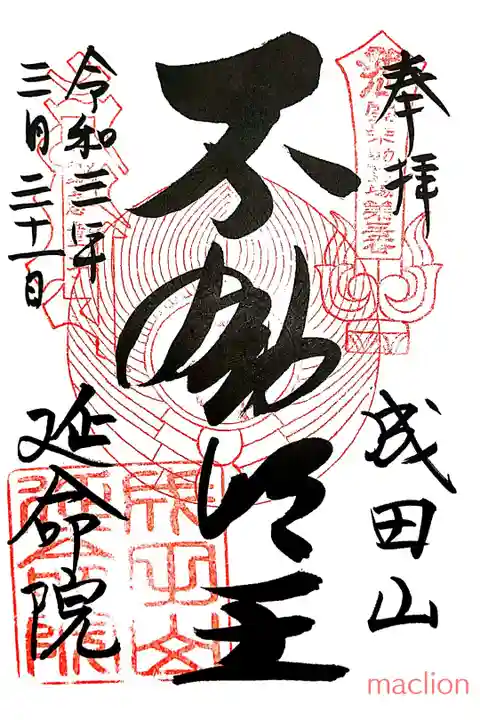 奉拝
成田山
不動明王
令和三年
三月二十一日
延命院
maclion